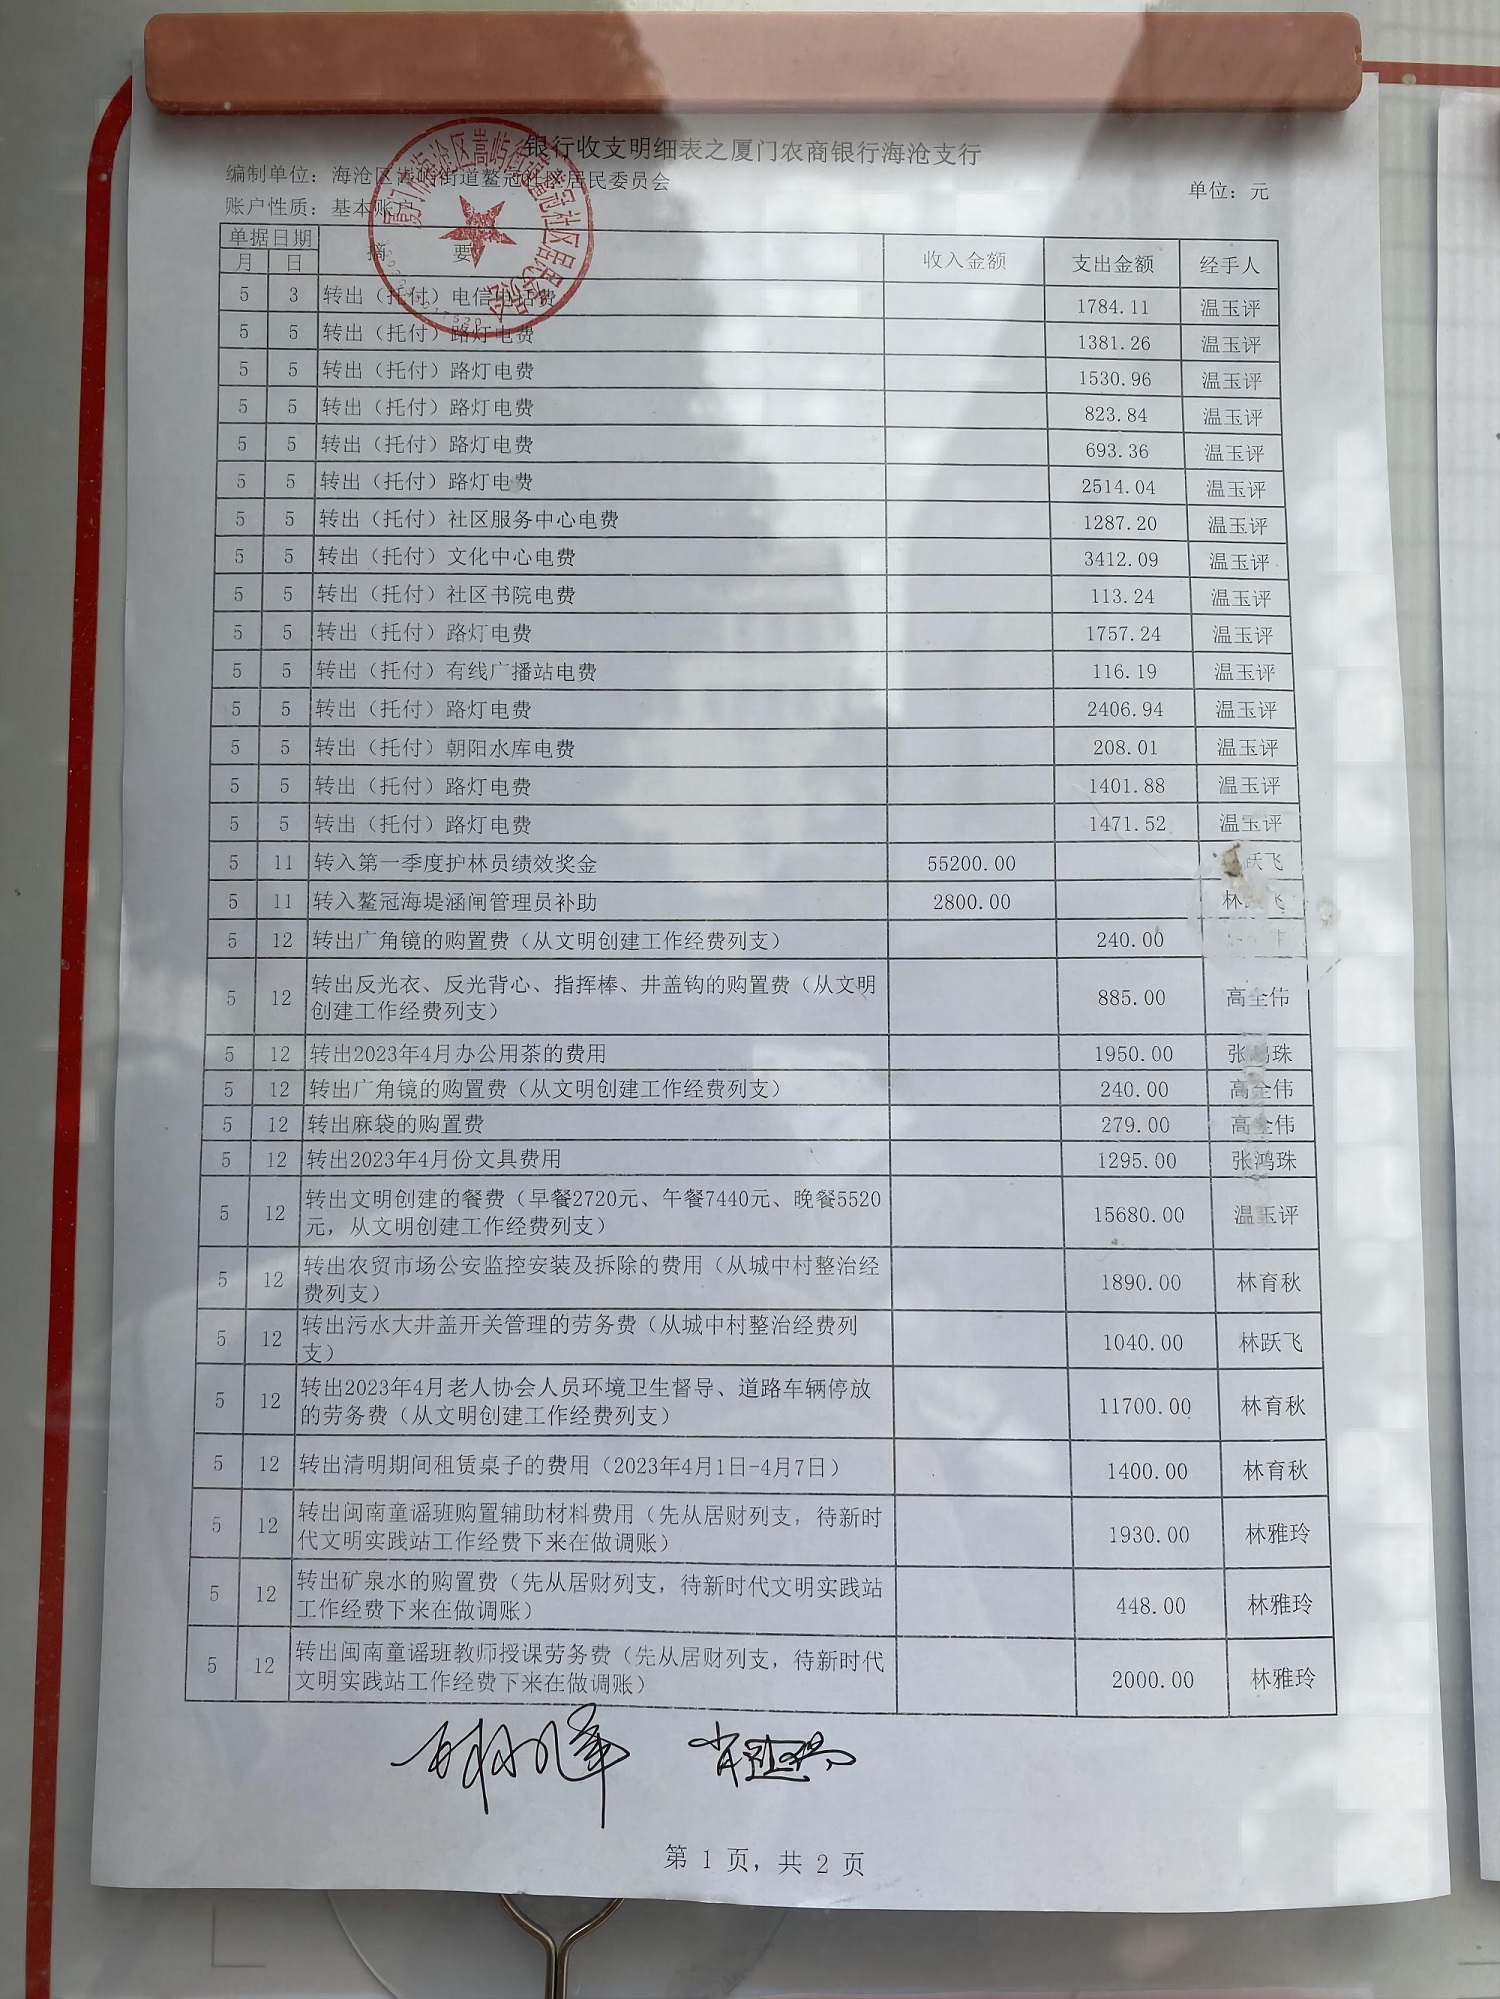 银行收支明细表之厦门农商银行海沧支行
编制单位：海沧区嵩屿街道鳌冠社区居民委员会
单位：元
账户性质：基本账户
单据日期 摘 要 收入金额 支出金额 经手人
月 日
5 3 转出（托付）电信电话费 1784.11 温玉评
5 5 转出（托付）路灯电费 1381.26 温玉评
5 5 转出（托付）路灯电费 1530.96 温玉评
5 5 转出（托付）路灯电费 823.84 温玉评
5 5 转出（托付）路灯电费 693.36 温玉评
5 5 转出（托付）路灯电费 2514.04 温玉评
5 5 转出（托付）社区服务中心电费 1287.20 温玉评
5 5 转出（托付）文化中心电费 3412.09 温玉评
5 5 转出（托付）社区书院电费 113.24 温玉评
5 5 转出（托付）路灯电费 1757.24 温玉评
5 5 转出（托付）有线广播站电费 116.19 温玉评
5 5 转出（托付）路灯电费 2406.94 温玉评
5 5 转出（托付）朝阳水库电费 208.01 温玉评
5 5 转出（托付）路灯电费 1401.88 温玉评
5 5 转出（托付）路灯电费 1471.52 温玉评
5 11 转入第一季度护林员绩效奖金 55200.00 跃飞
5 11 转入鳌冠海堤涵闸管理员补助 2800.00 林跃飞
5 12 转出广角镜的购置费（从文明创建工作经费列支） 240.00
5 12 转出反光衣、反光背心、指挥棒、井盖钩的购置费（从文明
创建工作经费列支） 885.00 高全伟
5 12 转出2023年4月办公用茶的费用 1950.00 张鸿珠
5 12 转出广角镜的购置费（从文明创建工作经费列支） 240.00 高全伟
5 12 转出麻袋的购置费 279.00 高全伟
5 12 转出2023年4月份文具费用 1295.00 张鸿珠
5 12 转出文明创建的餐费（早餐2720元、午餐7440元、晚餐5520
元，从文明创建工作经费列支） 15680.00 温玉评
5 12 转出农贸市场公安监控安装及拆除的费用（从城中村整治经
费列支） 1890.00 林育秋
5 12 转出污水大井盖开关管理的劳务费（从城中村整治经费列
支） 1040.00 林跃飞
5 12 转出2023年4月老人协会人员环境卫生督导、道路车辆停放
的劳务费（从文明创建工作经费列支） 11700.00 林育秋
5 12 转出清明期间租赁桌子的费用（2023年4月1日-4月7日） 1400.00 林育秋
5 12 转出闽南童谣班购置辅助材料费用（先从居财列支，待新时
代文明实践站工作经费下来在做调账） 1930.00 林雅玲
5 12 转出矿泉水的购置费（先从居财列支，待新时代文明实践站
工作经费下来在做调账） 448.00 林雅玲
5 12 转出闽南童谣班教师授课劳务费（先从居财列支，待新时代
文明实践站工作经费下来在做调账） 2000.00 林雅玲
第 1 页，共 2 页